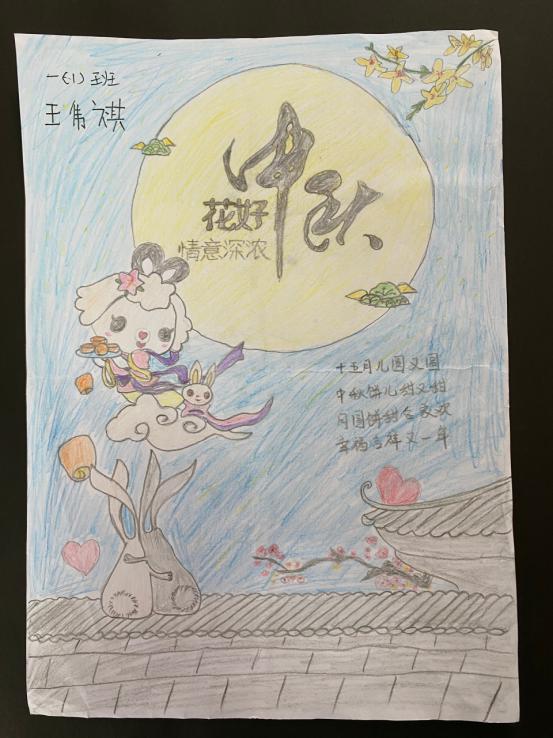 一（1）班
王伟祺
中秋
花好
情意深浓
十五月儿圆又圆
中秋饼儿甜又甜
月圆饼甜合家欢
幸福吉祥又一年